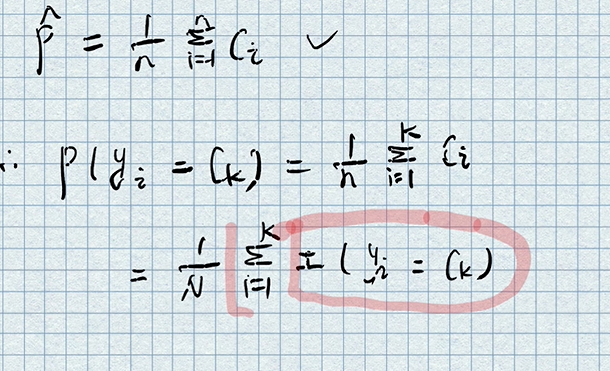 p̂ = 1/n Σ_{i=1}^{n} C_i ✓
∴ P(y_i = C_k) = 1/n Σ_{i=1}^{K} C_i
= 1/N Σ_{i=1}^{K} I(y_i = C_k)